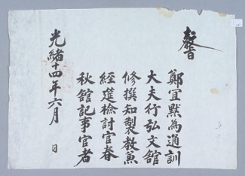 敎旨
鄭宜默爲通訓
大夫行弘文館
修撰知製敎兼
經筵檢討官春
秋館記事官者
光緖十四年六月 日